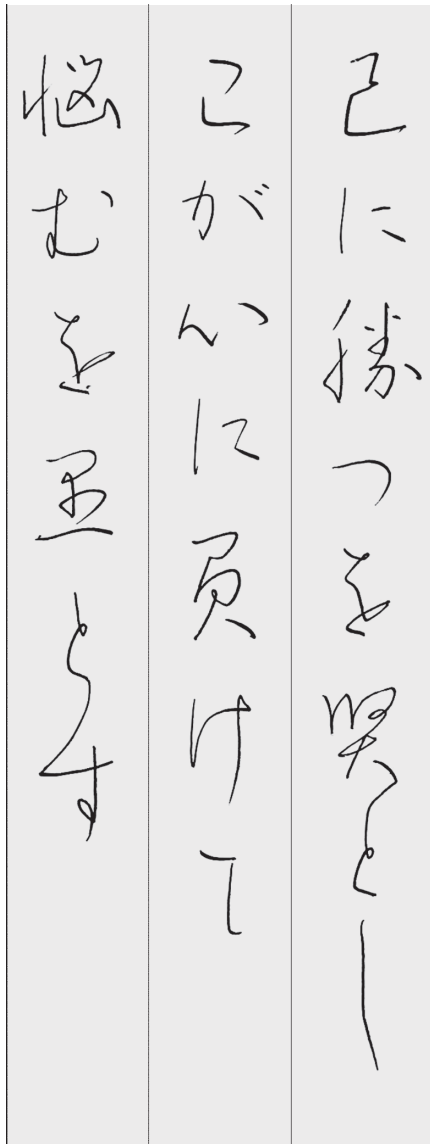 己に勝つを賢とし
己が心に負けて
悩むを愚とす